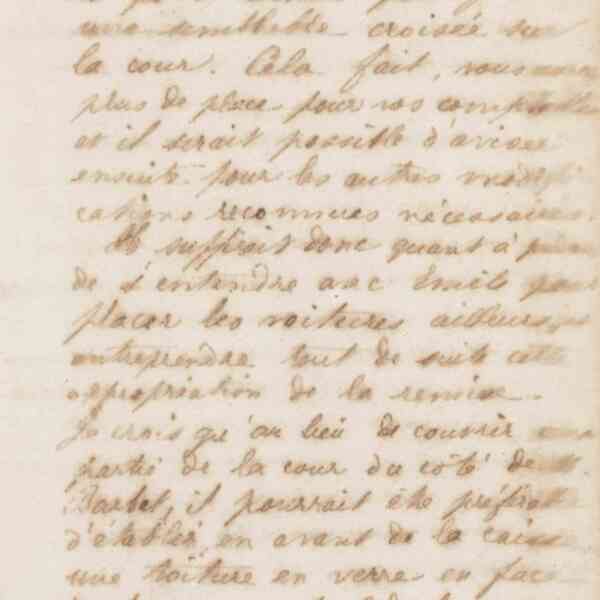 une semblable croisée sur
la cour. Cela fait, vous
plus de place pour vos
et il serait possible d'aviser
ensuite pour les autres modifi
cations reconnues nécessaires.
Il suffirait donc quant à
de s'entendre avec Emile pour
placer les voitures ailleurs,
entreprendre tout de suite cette
appropriation de la remise.
Je crois qu'au lieu de couvrir une
partie de la cour du côté de
Barbet, il pourrait être préférable
d'établir, en avant de la caisse
une toiture en verre en face